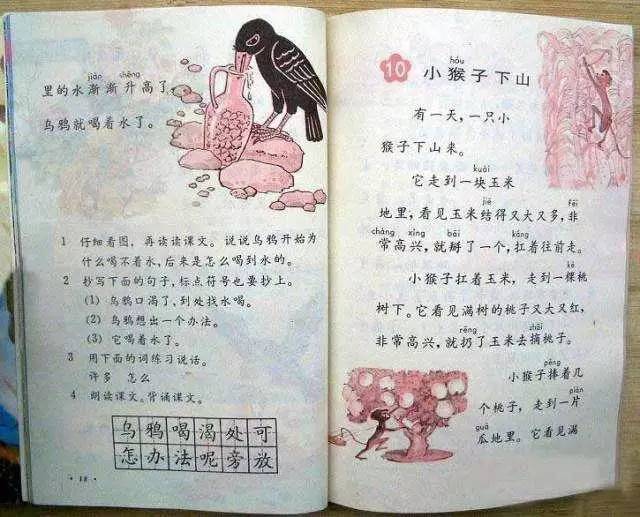 jiàn shēng
里的水渐渐升高了,
乌鸦就喝着水了。
1 仔细看图,再读读课文。说说乌鸦开始为
什么喝不着水,后来是怎么喝到水的。
2 抄写下面的句子,标点符号也要抄上。
(1) 乌鸦口渴了,到处找水喝。
(2) 乌鸦想出一个办法。
(3) 它喝着水了。
3 用下面的词练习说话。
许多 怎么
4 朗读课文。背诵课文。
乌鸦喝渴处可
怎办法呢旁放
· 18 ·
hóu
10 小猴子下山
有一天,一只小
猴子下山来。
kuài
它走到一块玉米
jiē fēi
地里,看见玉米结得又大又多,非
cháng xìng bāi káng
常高兴,就掰了一个,扛着往前走。
小猴子扛着玉米,走到一棵桃
树下。它看见满树的桃子又大又红,
rēng zhāi
非常高兴,就扔了玉米去摘桃子。
pěng
小猴子捧着几
piàn
个桃子,走到一片
guā
瓜地里。它看见满